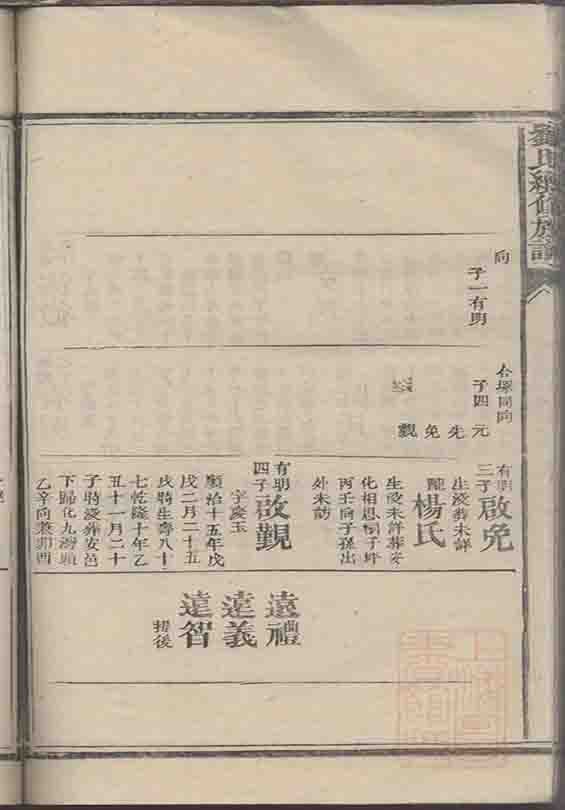 劉氏續修族譜
向
子一有明
合塚同向
子四 元 先 免 觀
有明三子 啟免
生歿葬未詳
配 楊氏
生歿未詳葬安
化相思桐子坪
丙壬向子孫出
外未訪
有明四子 啟觀
字慶玉
順治十五年戊
戌二月二十五
戌時生壽八十
七乾隆十年乙
丑十一月二十
子時歿葬安邑
下歸化九灣頭
乙辛向兼卯酉
遠禮
達義
達智